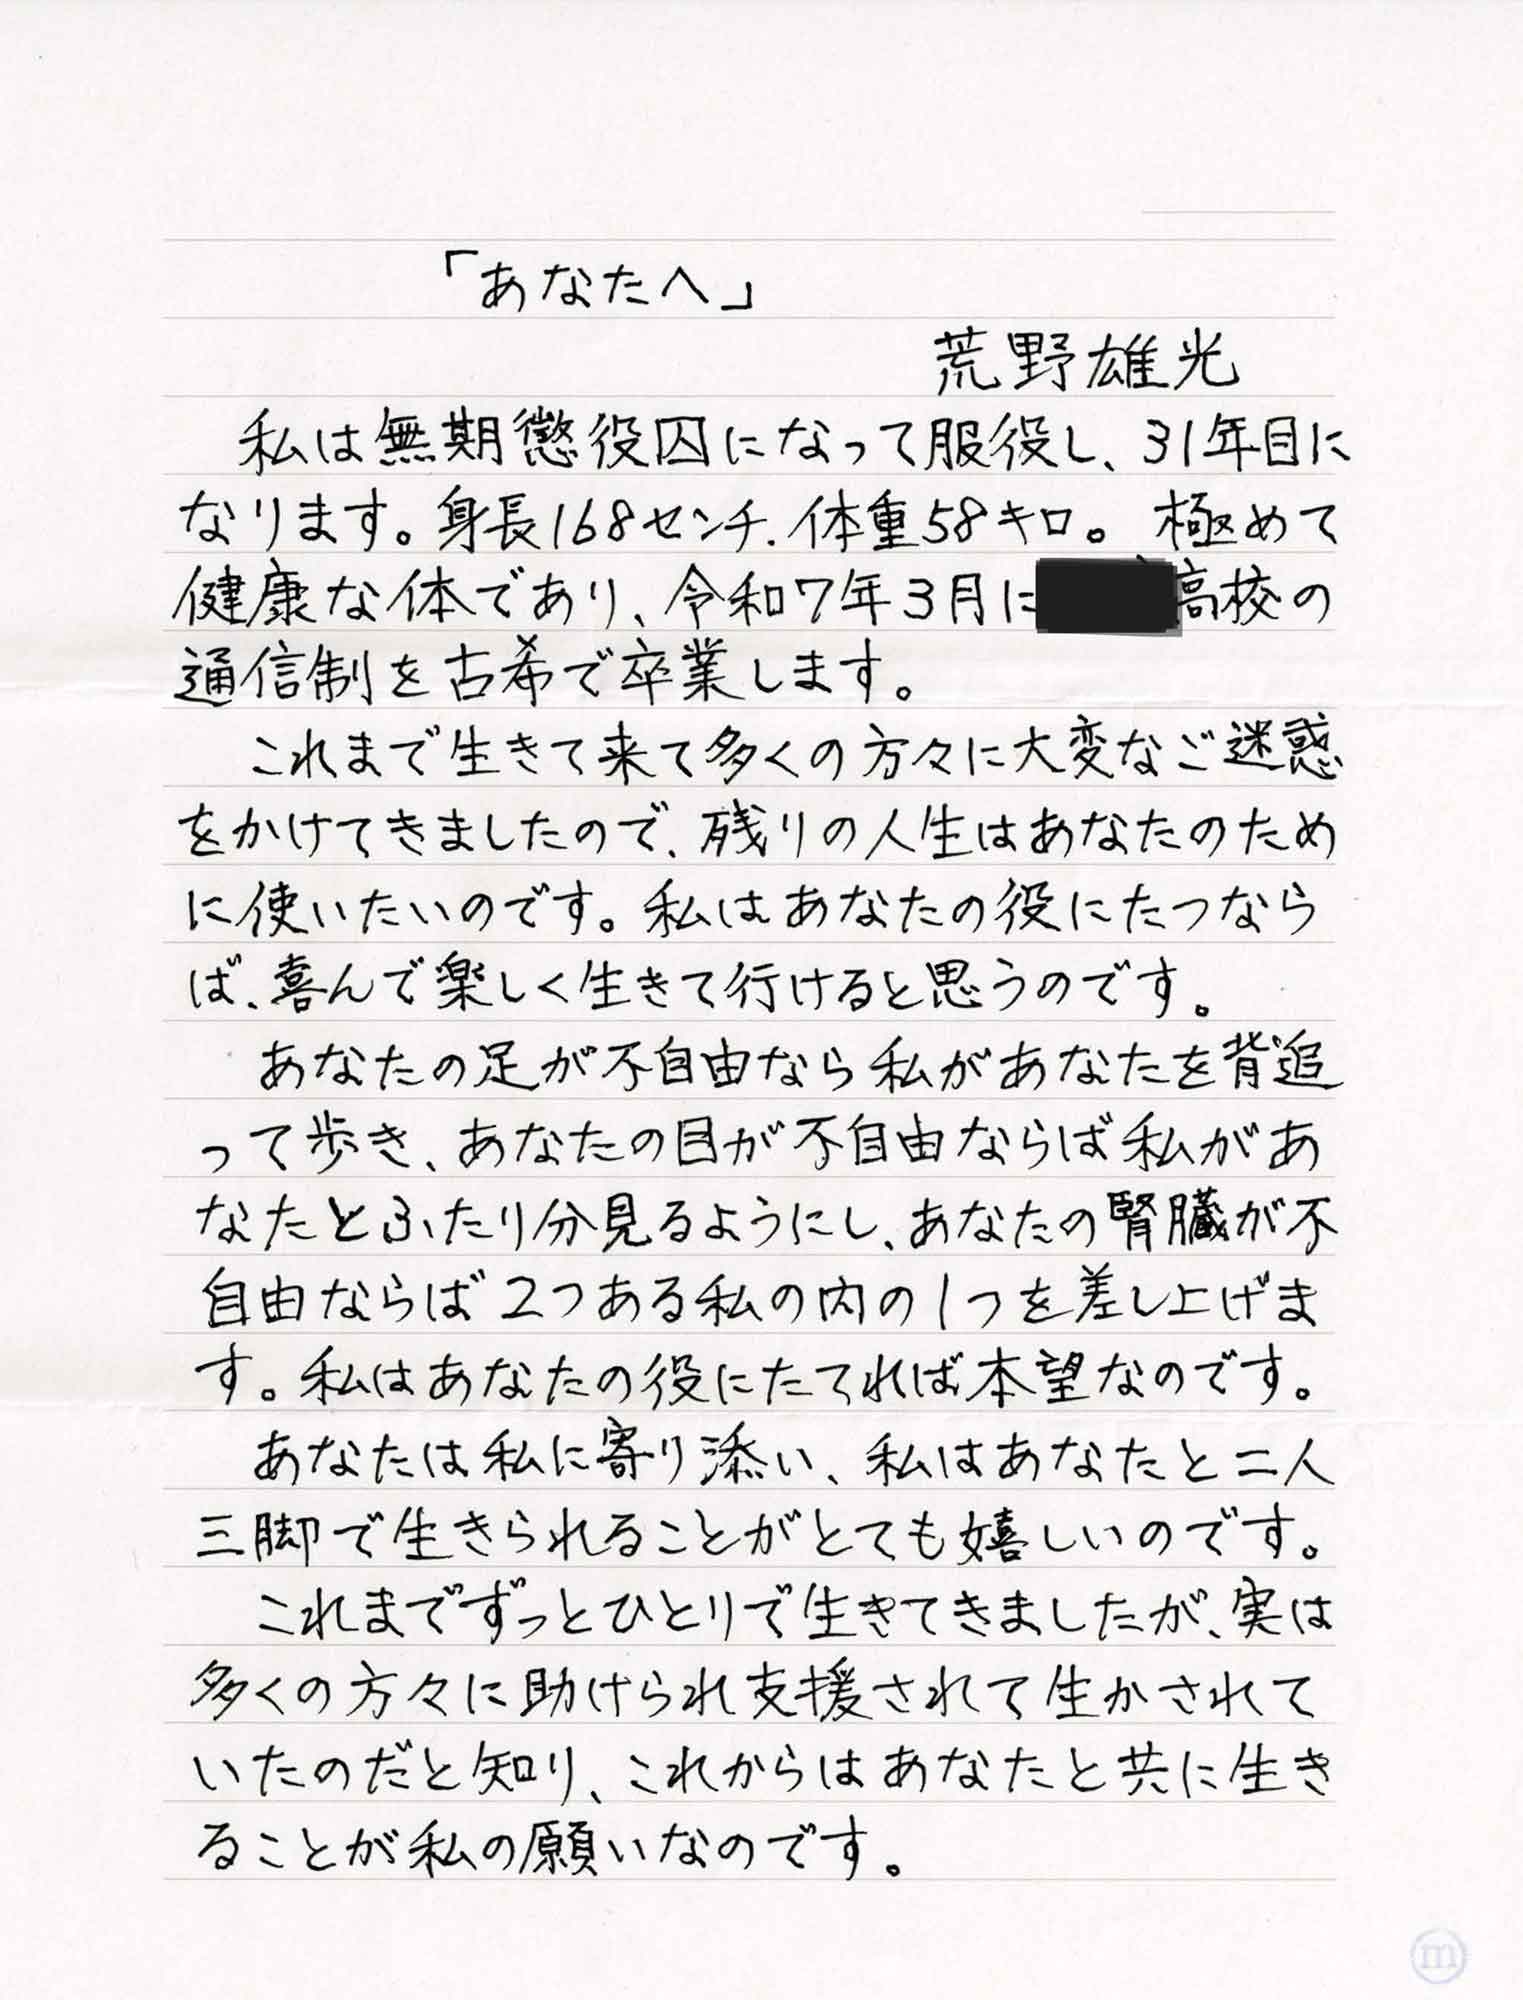 「あなたへ」
荒野雄光
私は無期懲役囚になって服役し、31年目に
なります。身長168センチ.体重58キロ。極めて
健康な体であり、令和7年3月に高校の
通信制を古希で卒業します。
これまで生きて来て多くの方々に大変なご迷惑
をかけてきましたので、残りの人生はあなたのため
に使いたいのです。私はあなたの役にたつなら
ば、喜んで楽しく生きて行けると思うのです。
あなたの足が不自由なら私があなたを背追
って歩き、あなたの目が不自由ならば私があ
なたとふたり分見るようにし、あなたの腎臓が不
自由ならば2つある私の内の1つを差し上げま
す。私はあなたの役にたてれば本望なのです。
あなたは私に寄り添い、私はあなたと二人
三脚で生きられることがとても嬉しいのです。
これまでずっとひとりで生きてきましたが、実は
多くの方々に助けられ支援されて生かされて
いたのだと知り、これからはあなたと共に生き
ることが私の願いなのです。
m